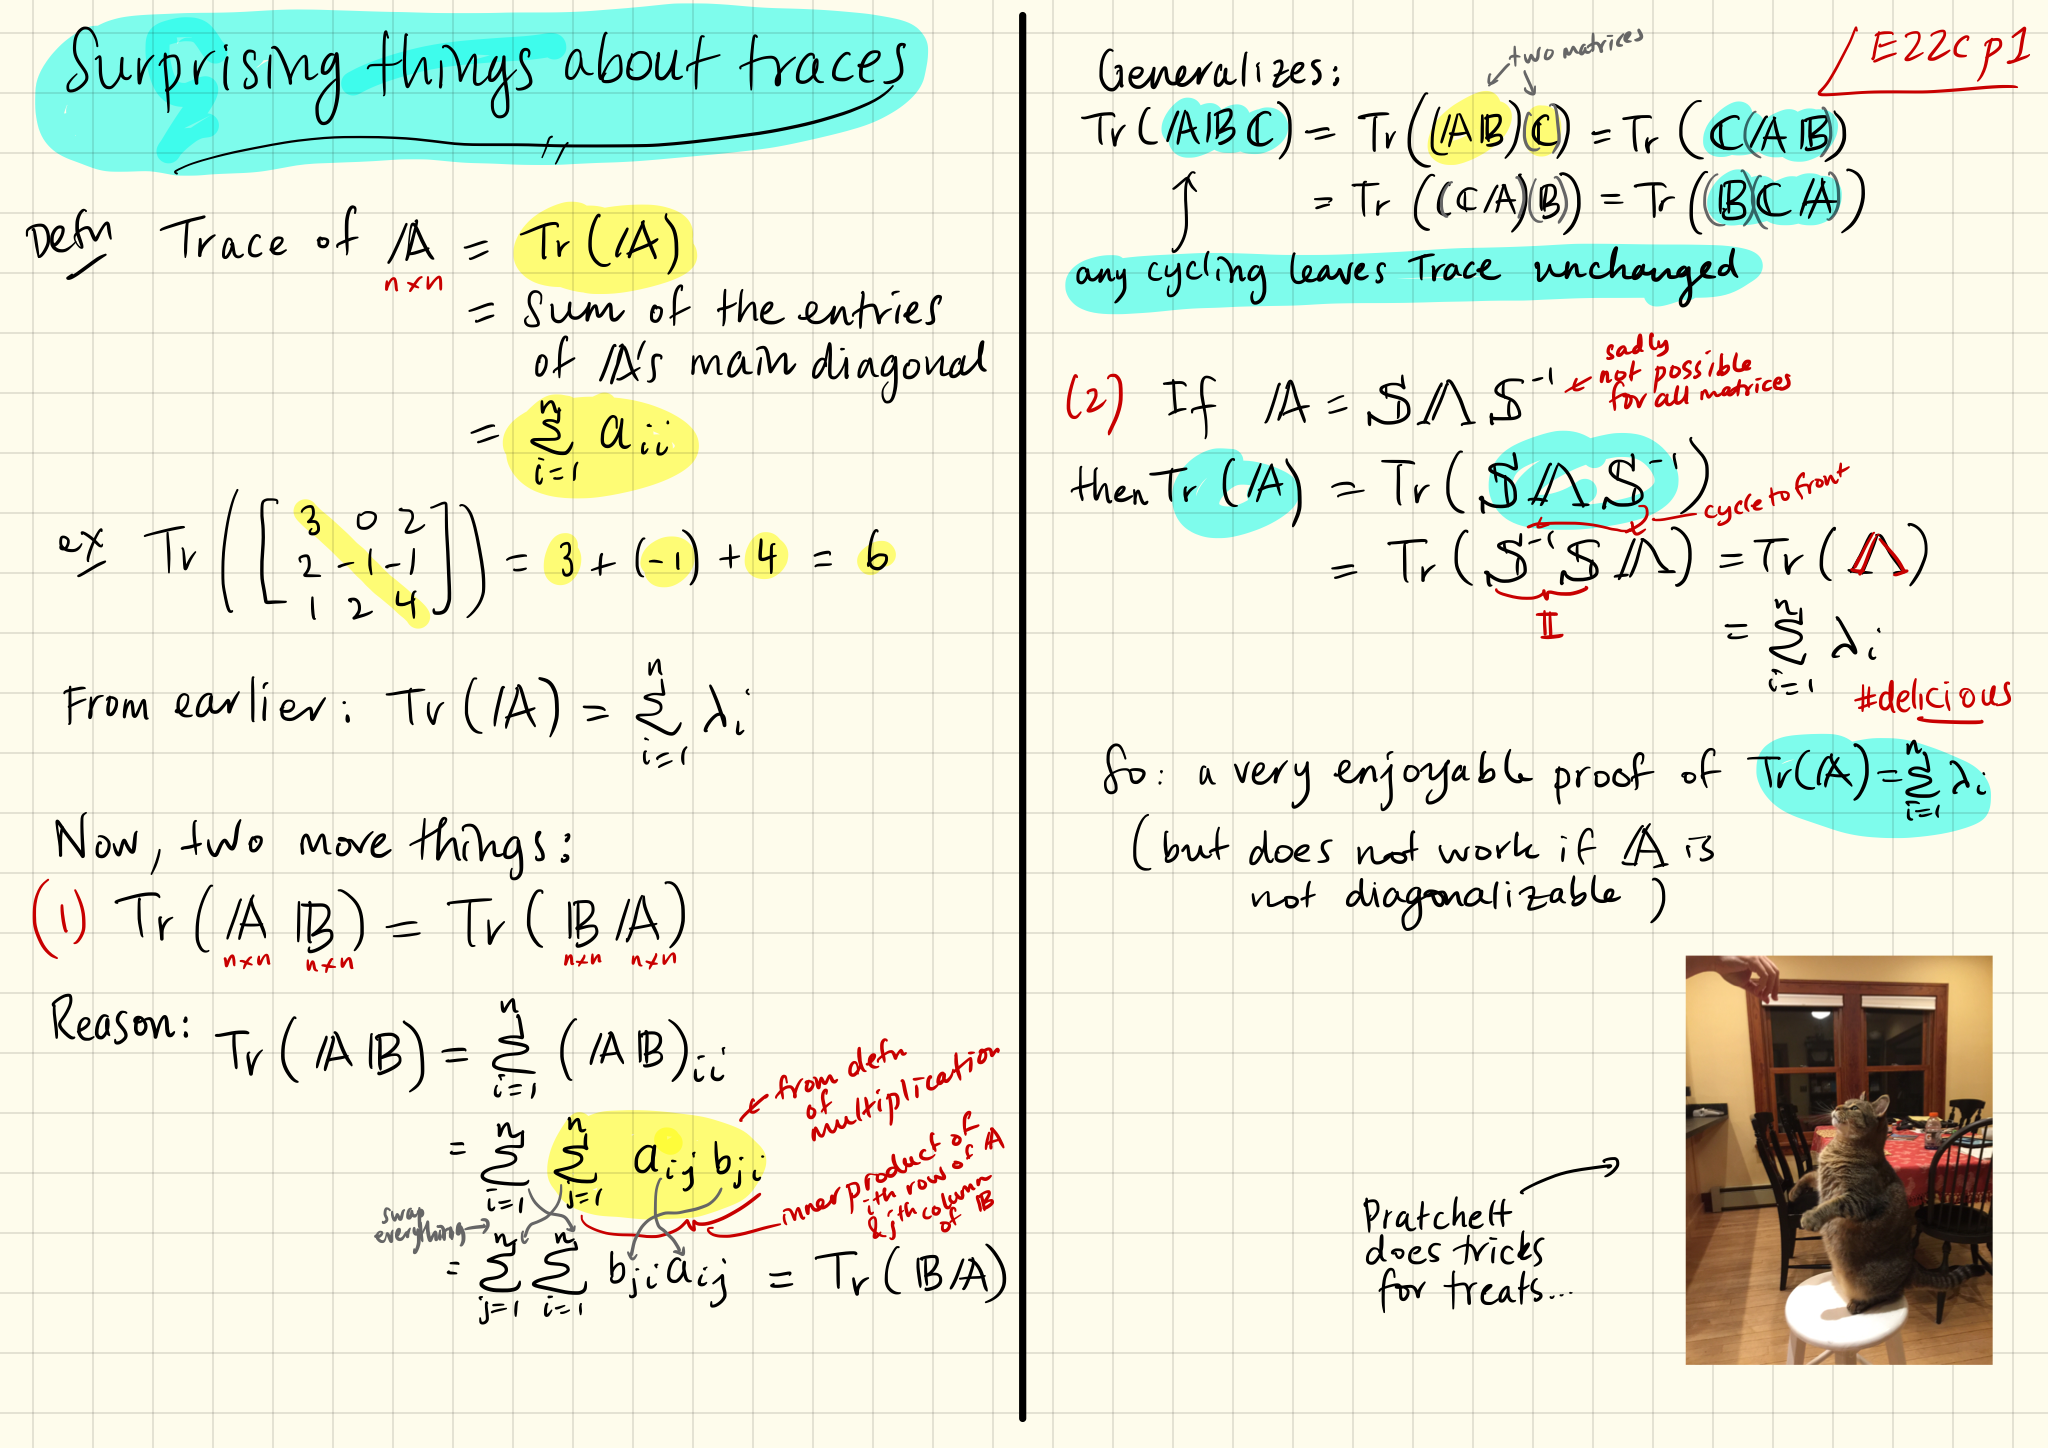 Surprising things about traces
Defn Trace of A = Tr(A)
n×n
= sum of the entries
of A's main diagonal
= n Σ i=1 a ii
ex Tr ( [ 3 0 2
2 -1 -1
1 2 4 ] ) = 3 + (-1) + 4 = 6
From earlier: Tr(A) = n Σ i=1 λi
Now, two more things:
(1) Tr(A B) = Tr(B A)
n×n n×n n×n n×n
Reason: Tr(AB) = n Σ i=1 (AB)ii
= n Σ i=1 n Σ j=1 aij bji
← from defn
of
multiplication
inner product of
ith row of A
& jth column
of B
swap
everything →
= n Σ j=1 n Σ i=1 bji aij = Tr(BA)
E22c p1
Generalizes:
two matrices
Tr(ABC) = Tr((AB)(C)) = Tr(C(AB))
= Tr((CA)(B)) = Tr((B)(CA))
↑
any cycling leaves Trace unchanged
(2) If A = SΛS⁻¹
← sadly
not possible
for all matrices
then Tr(A) = Tr(SΛS⁻¹)
cycle to front
= Tr(S⁻¹SΛ) = Tr(Λ)
I
= n Σ i=1 λi
#delicious
So: a very enjoyable proof of Tr(A) = n Σ i=1 λi
(but does not work if A is
not diagonalizable)
Pratchett
does tricks
for treats...